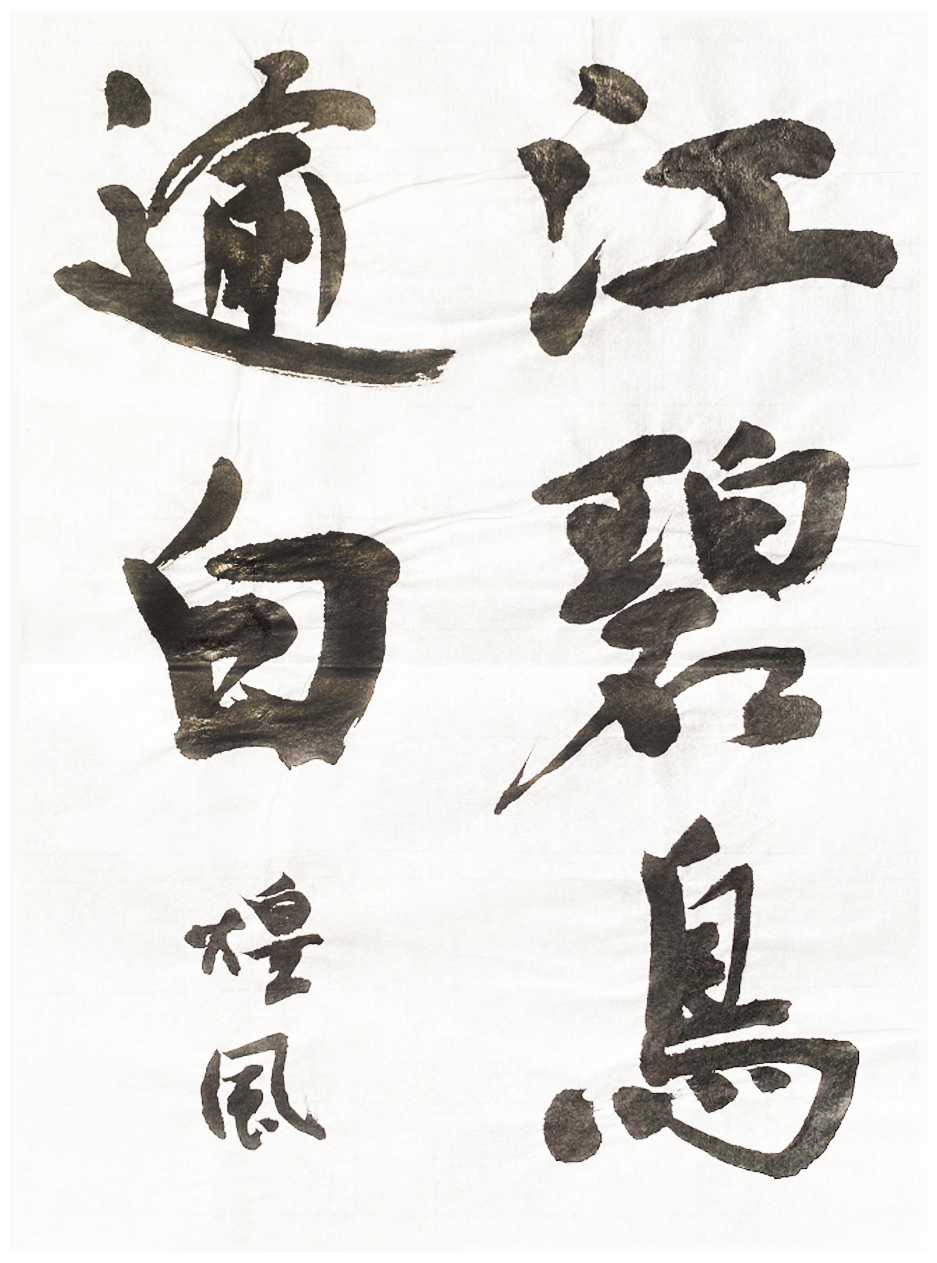 江碧鳥
逾白
煌風